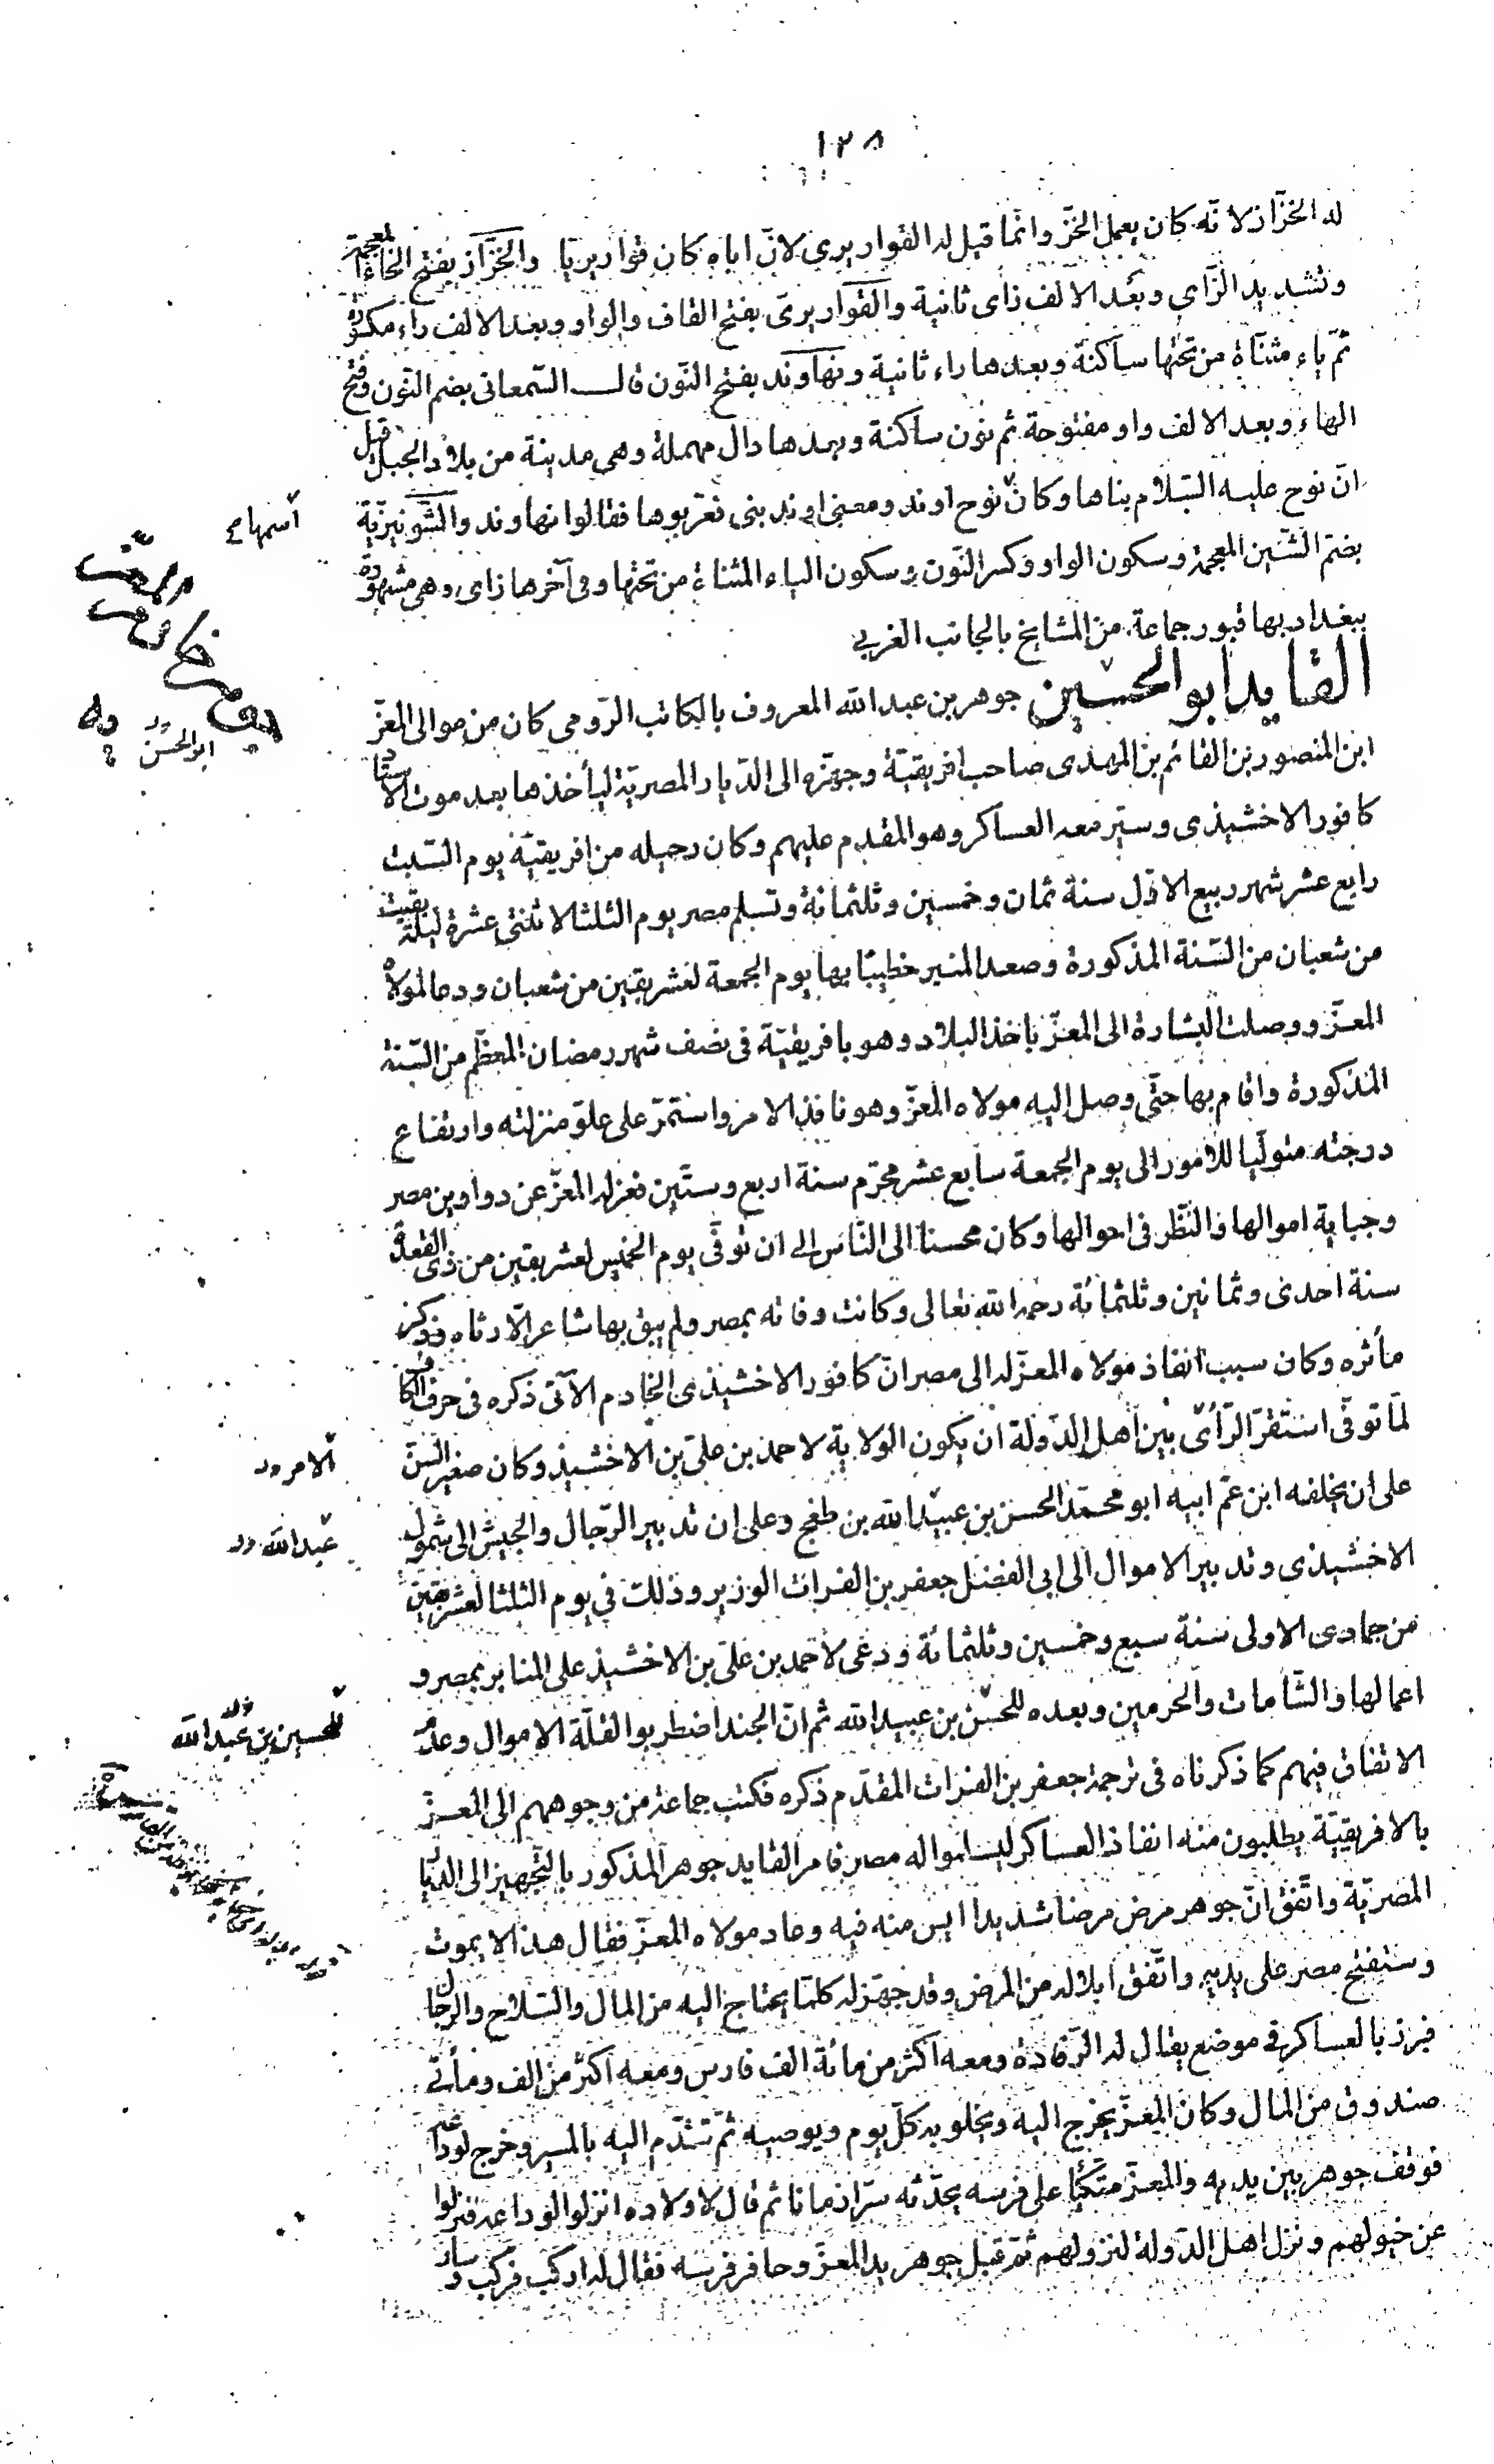 ١٢٨
له الخزّاز لانّه كان يعمل الخزّ وانّما قيل له القواريرى لانّ اباه كان قواريريّا والخزّاز بفتح الخاء المعجمة
وتشديد الزّاى وبعد الالف زاى ثانية والقواريرىّ بفتح القاف والواو وبعد الالف راء مكسورة
ثمّ ياء مثنّاة من تحتها ساكنة وبعدها راء ثانية ونهاوند بفتح النّون قال السّمعانى بضم النّون وفتح
الهاء وبعد الالف واو مفتوحة ثم نون ساكنة وبعدها دال مهملة وهى مدينة من بلاد الجبل قيل
انّ نوح عليه السّلام بناها وكان نوح اوند ومعنى اوند بنى فعرّبوها فقالوا نهاوند والشّونيزيّة
بضمّ الشّين المعجمة وسكون الواو وكسر النّون وسكون الياء المثناة من تحتها وفى آخرها زاى وهى مشهورة
ببغداد بها قبور جماعة من المشايخ بالجانب الغربى
القايد ابو الحسين جوهر بن عبد الله المعروف بالكاتب الرّومى كان من موالى المعزّ
ابن المنصور بن القائم بن المهدى صاحب افريقيّة وجهّزه الى الدّيار المصريّة ليأخذها بعد موت الاستاد
كافور الاخشيذى وسيّر معه العساكر وهو المقدم عليهم وكان رحيله من افريقيّة يوم السّبت
رابع عشر شهر ربيع الاوّل سنة ثمان وخمسين وثلثمائة وتسلم مصر يوم الثلثا لاثنتى عشرة ليلة بقيت
من شعبان من السّنة المذكورة وصعد المنبر خطيبًا بها يوم الجمعة لعشر بقين من شعبان ودعا لمولاه
المعزّ ووصلت البشارة الى المعزّ باخذ البلاد وهو بافريقيّة فى نصف شهر رمضان المعظّم من السّنة
المذكورة واقام بها حتّى وصل اليه مولاه المعزّ وهو نافذ الامر واستمرّ على علوّ منزلته وارتفاع
درجته متولّيا للامور الى يوم الجمعة سابع عشر محرّم سنة اربع وستّين فعزله المعزّ عن دواوين مصر
وجباية اموالها والنّظر فى احوالها وكان محسنا الى النّاس الى ان توفّى يوم الخميس لعشر بقين من ذى القعدة
سنة احدى وثمانين وثلثمائة رحمه الله تعالى وكانت وفاته بمصر ولم يبق بها شاعر الّا رثاه وذكر
مأثره وكان سبب انفاذ مولاه المعزّ له الى مصر انّ كافور الاخشيذى الخادم الآتى ذكره فى حرف الكاف
لمّا توفّى استقرّ الرّأى بين اهل الدّولة ان يكون الولاية لاحمد بن علىّ بن الاخشيذ وكان صغير السّنّ
على ان يخلفه ابن عمّ ابيه ابو محمّد الحسن بن عبيد الله بن طغج وعلى ان تدبير الرّجال والجيش الى شمول
الاخشيذى وتدبير الاموال الى ابى الفضل جعفر بن الفرات الوزير وذلك فى يوم الثلثا لعشر بقين
من جمادى الاولى سنة سبع وخمسين وثلثمائة ودعى لاحمد بن علىّ بن الاخشيذ على المنابر بمصر و
اعمالها والشّامات والحرمين وبعده للحسن بن عبيد الله ثم انّ الجند اضطربوا لقلّة الاموال وعدم
الاتفاق فيهم كما ذكرناه فى ترجمة جعفر بن الفرات المقدّم ذكره فكتب جماعة من وجوههم الى المعزّ
بالافريقيّة يطلبون منه انفاذ العساكر ليسلموا له مصر فامر القايد جوهر المذكور بالتّجهيز الى الدّيار
المصريّة واتّفق انّ جوهر مرض مرضا شديدا ايس منه فيه وعاد مولاه المعزّ فقال هذا لا يموت
وستفتح مصر على يديه واتّفق ابلاله من المرض وقد جهّز له كلّما يحتاج اليه من المال والسّلاح والرجال
فبرز بالعساكر فى موضع يقال له الرّقادة ومعه اكثر من مائة الف فارس ومعه اكثر من الف ومأتى
صندوق من المال وكان المعزّ يخرج اليه ويخلو به كلّ يوم ويوصيه ثمّ تقدّم اليه بالمسير وخرج لوداعه
فوقف جوهر بين يديه والمعزّ متّكئا على فرسه يحدّثه سرّا زمانا ثم قال لاولاده انزلوا لوداعه فنزلوا
عن خيولهم ونزل اهل الدّولة لنزولهم ثمّ قبل جوهر يد المعزّ وحافر فرسه فقال له اركب فركب وسار
اسمها
ابو الحسن
الامر
عبد الله
للحسين بن عبد الله